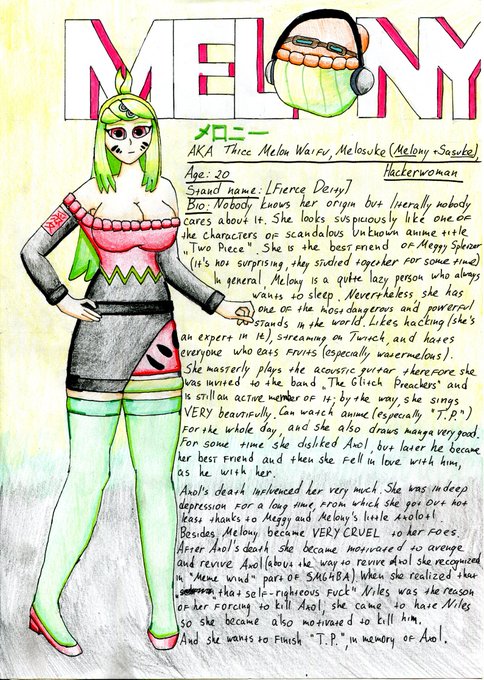 MELONY
メロニー
AKA Thicc Melon Waifu, Melosuke (Melony + Sasuke),
Age: 20 Hackerwoman
Stand name: [Fierce Deity]
Bio: Nobody knows her origin but literally nobody
cares about it. She looks suspiciously like one of
the characters of scandalous unknown anime title
„Two Piece". She is the best friend of Meggy Spletzer
(it's not surprising, they studied together for some time)
In general, Melony is a quite lazy person who always
wants to sleep. Nevertheless she has
one of the most dangerous and powerful
stands in the world. Likes hacking (she's
an expert in it), streaming on Twitch, and hates
everyone who eats fruits (especially watermelons).
She masterly plays the acoustic guitar therefore she
was invited to the band „The Glitch Preachers" and
is still an active member of it; by the way, she sings
VERY beautifully. Can watch anime (especially "T.P.")
For the whole day, and she also draws manga very good.
For some time she disliked Axol, but later he became
her best friend and then she fell in love with him,
as he with her.
Axol's death influenced her very much. She was in deep
depression for a long time, from which she got out not
least thanks to Meggy and Melony's little Axolotl.
Besides, Melony became VERY CRUEL to her foes.
After Axol's death she became motivated to avenge
and revive Axol (about the way to revive Axol she recognized
in "Meme wind" part of SMG4BA). When she realized that
„that self-righteous fuck" Niles was the reason
of her forcing to kill Axol, she came to hate Niles
so she became also motivated to kill him.
And she wants to finish "T.P.", in memory of Axol.